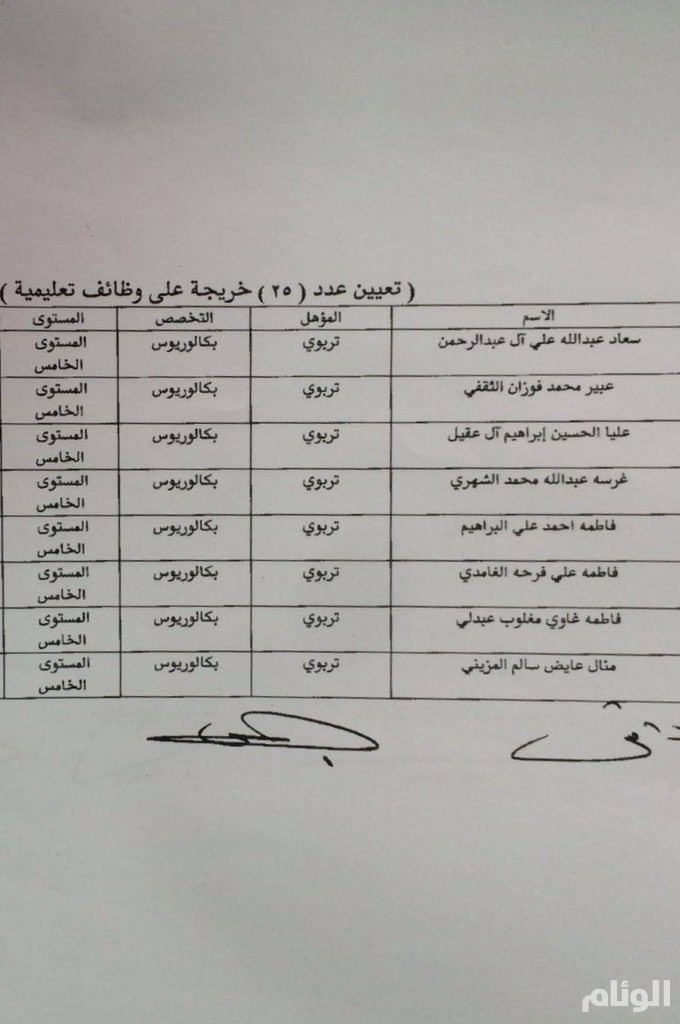 ( تعيين عدد ( ٢٥ ) خريجة على وظائف تعليمية )
الاسم المؤهل التخصص المستوى
سعاد عبدالله علي آل عبدالرحمن تربوي بكالوريوس المستوى
الخامس
عبير محمد فوزان الثقفي تربوي بكالوريوس المستوى
الخامس
عليا الحسين إبراهيم آل عقيل تربوي بكالوريوس المستوى
الخامس
غرسه عبدالله محمد الشهري تربوي بكالوريوس المستوى
الخامس
فاطمه احمد علي البراهيم تربوي بكالوريوس المستوى
الخامس
فاطمه علي فرحه الغامدي تربوي بكالوريوس المستوى
الخامس
فاطمه غاوي مغلوب عبدلي تربوي بكالوريوس المستوى
الخامس
منال عايض سالم المزيني تربوي بكالوريوس المستوى
الخامس
الوئام